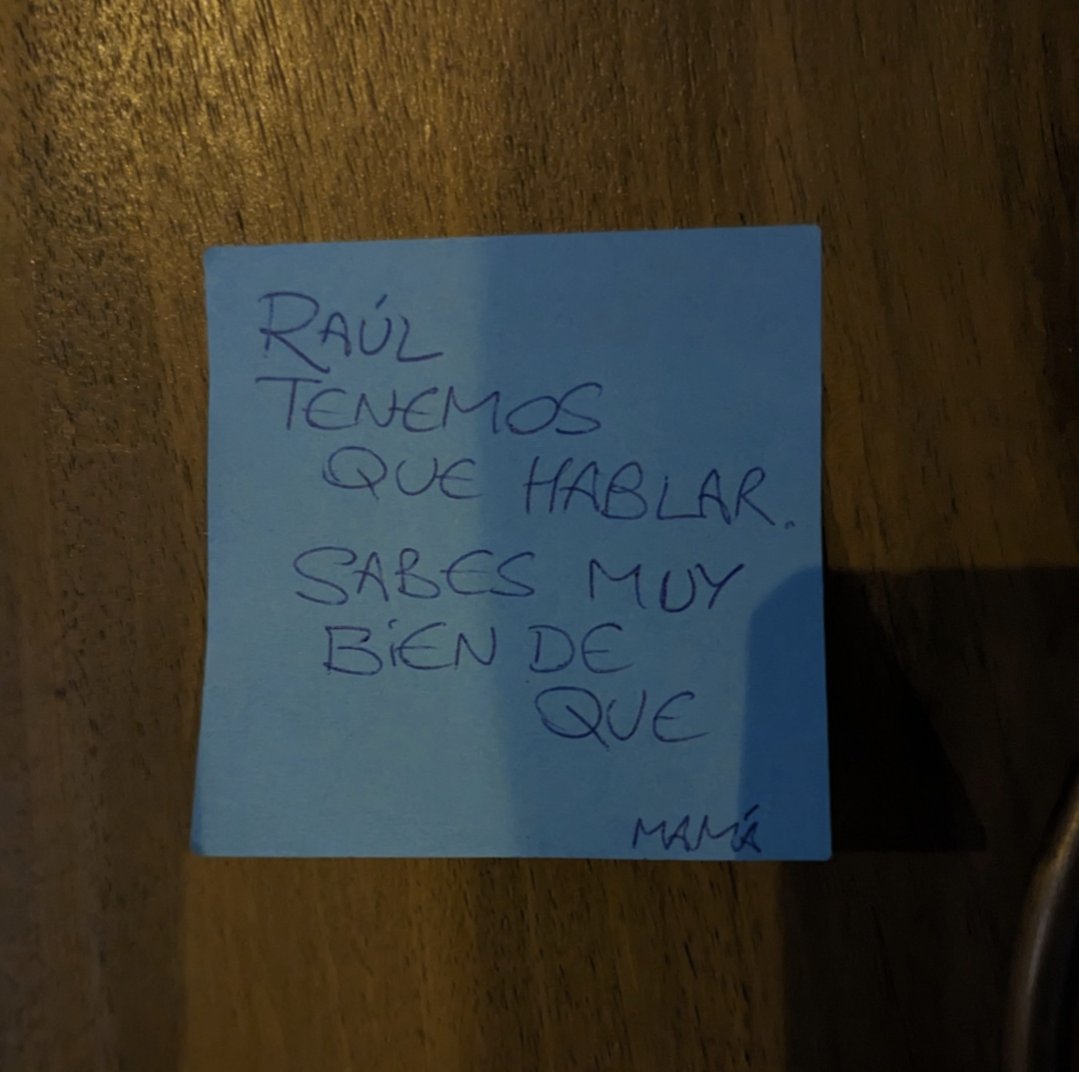 RAÚL
TENEMOS
QUE HABLAR.
SABES MUY
BiEN DE
QUE
MAMÁ